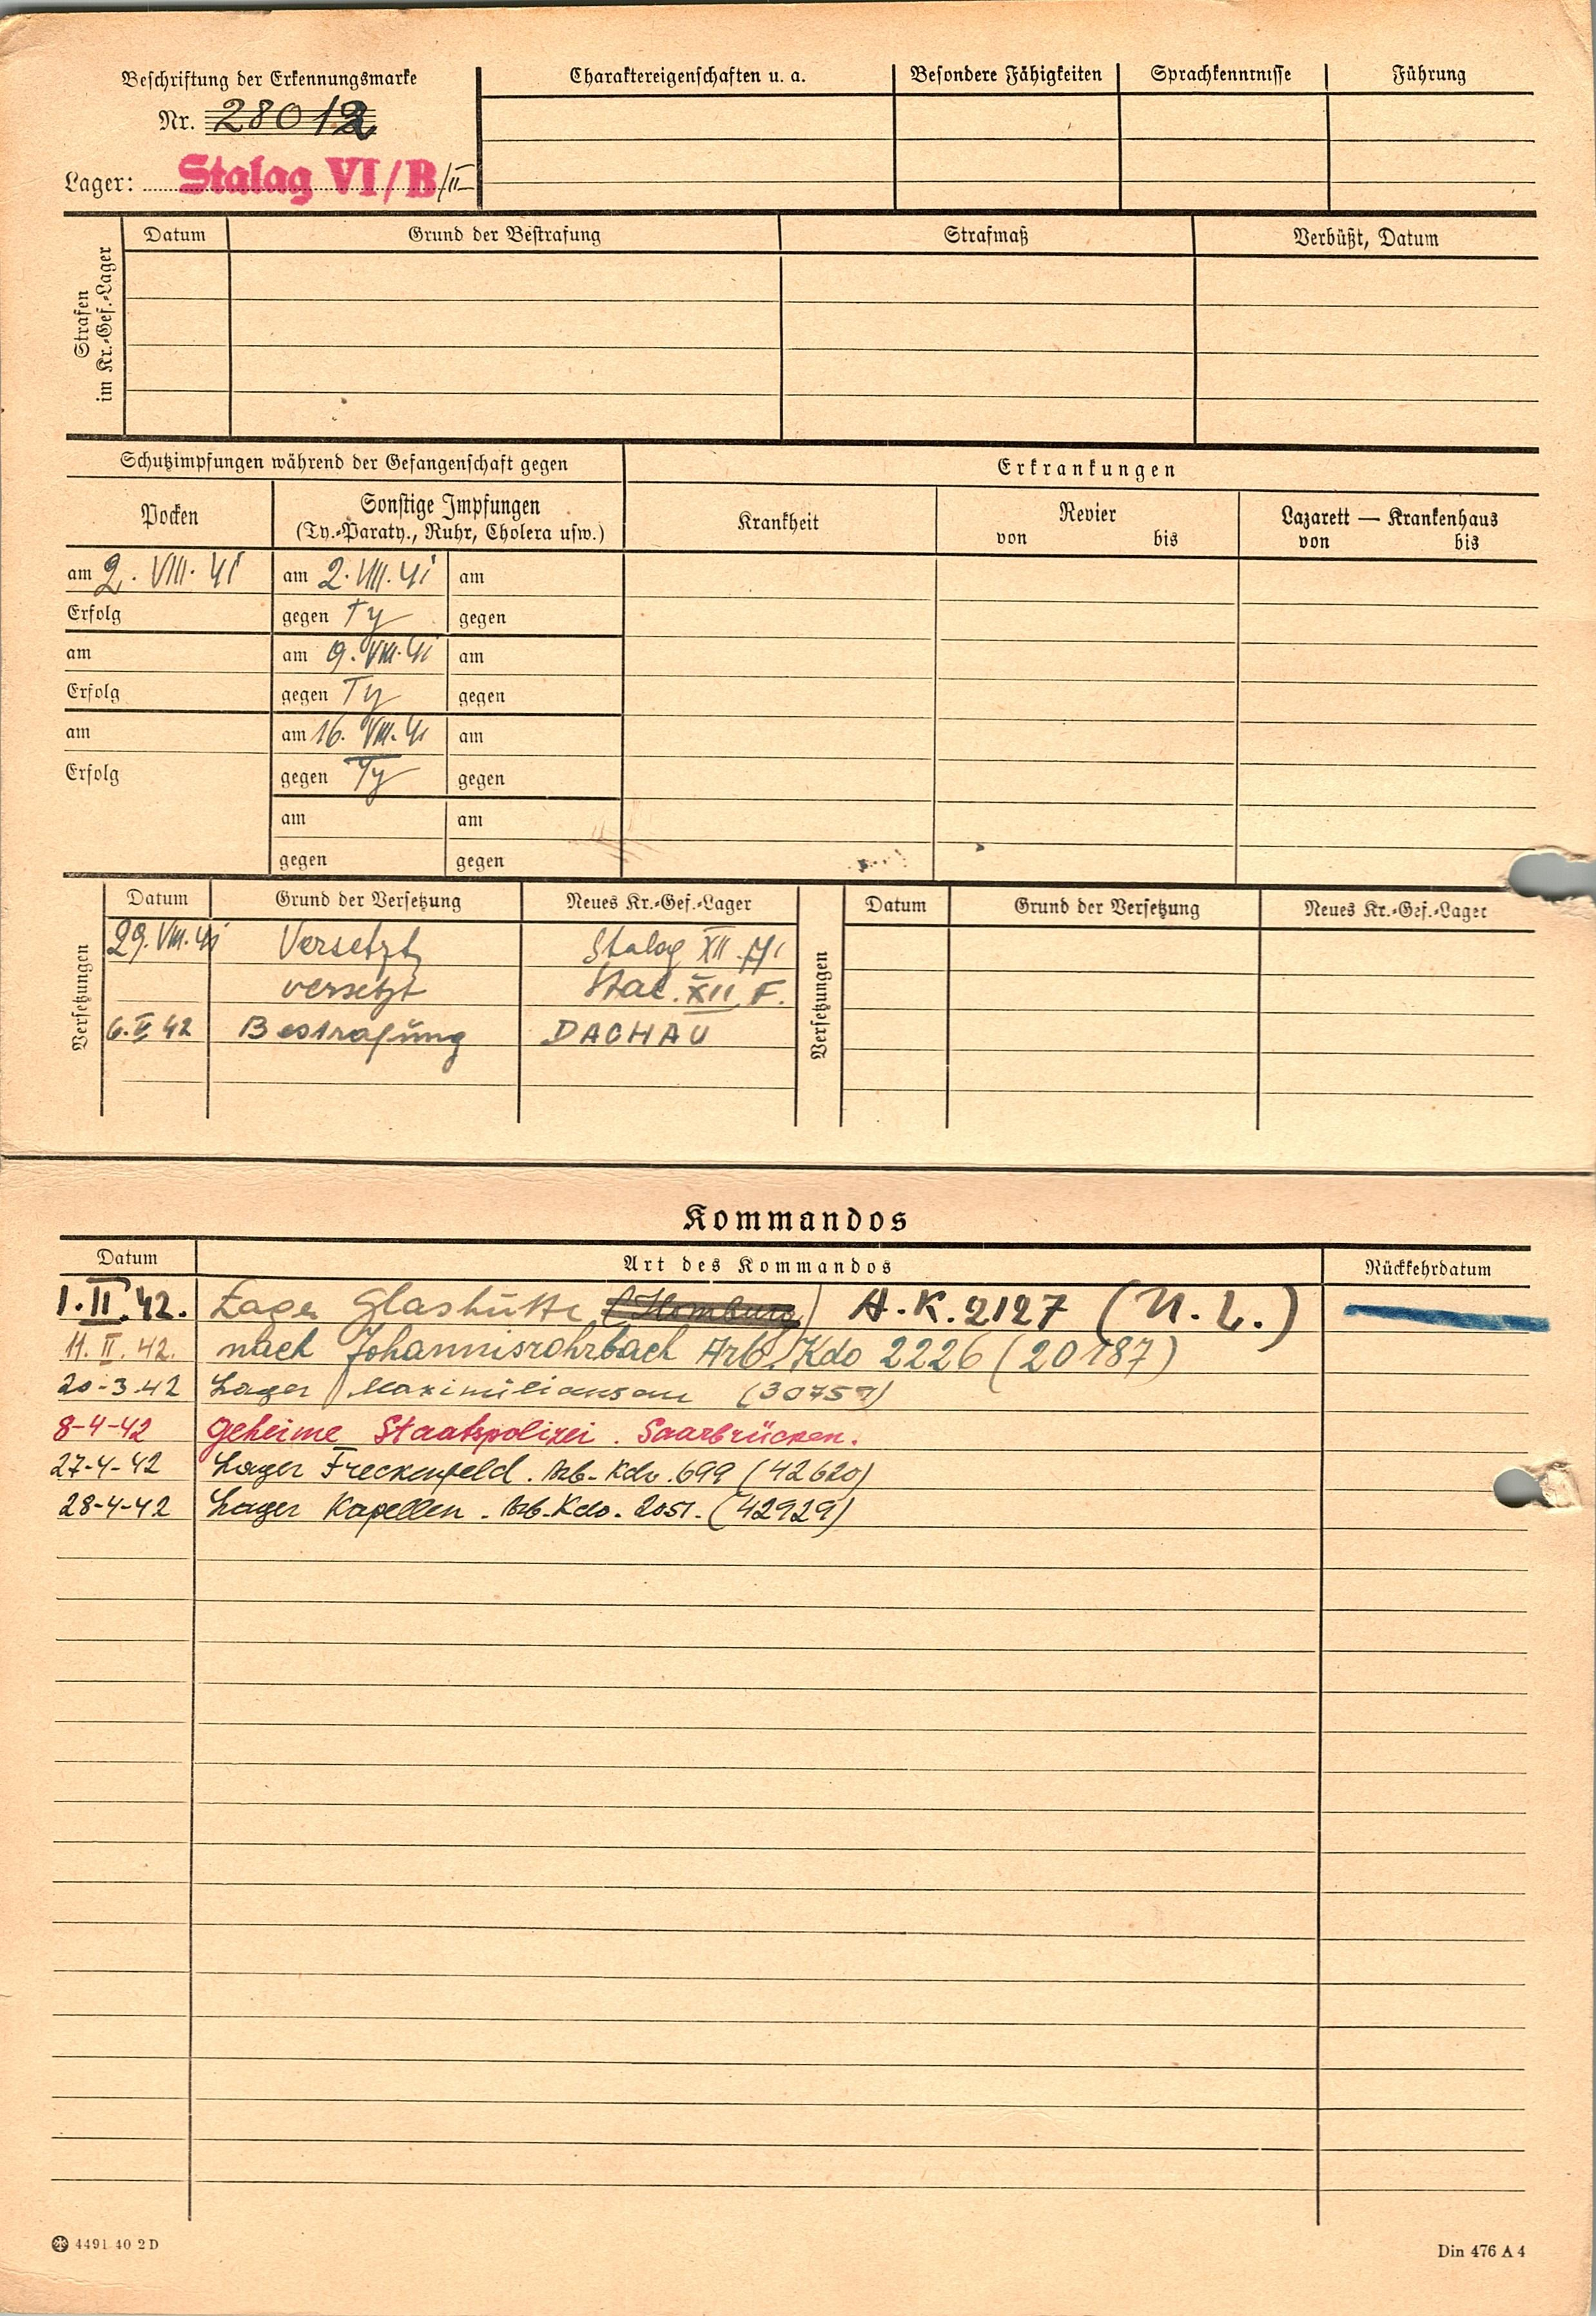 Beschriftung der Erkennungsmarke
Nr. 28012
Lager: Stalag VI/B/II
Charaktereigenschaften u. a.
Besondere Fähigkeiten
Sprachkenntnisse
Führung
Strafen
im Kr.-Gef.-Lager
Datum
Grund der Bestrafung
Strafmaß
Verbüßt, Datum
Schutzimpfungen während der Gefangenschaft gegen
Erkrankungen
Pocken
Sonstige Impfungen
(Ty.-Paraty., Ruhr, Cholera usw.)
Krankheit
Revier
von bis
Lazarett — Krankenhaus
von bis
am 2. VIII. 41 am 2. VIII. 41 am
Erfolg gegen Ty gegen
am am 9. VIII. 41 am
Erfolg gegen Ty gegen
am am 16. VIII. 41 am
Erfolg gegen Ty gegen
am am
gegen gegen
Versetzungen
Datum Grund der Versetzung Neues Kr.-Gef.-Lager
29. VIII. 41 Versetzt Stalag XII
versetzt Stal. XII F.
6. V 42 Bestrafung DACHAU
Versetzungen
Datum Grund der Versetzung Neues Kr.-Gef.-Lager
Kommandos
Datum Art des Kommandos Rückkehrdatum
1. II. 42. Lager Glashütte (Homburg) A.K. 2127 (N.L.)
11. II. 42. nach Johannisrohrbach Arb. Kdo 2226 (20187)
20-3.42 Lager Maximiliansau (30759)
8-4-42 Geheime Staatspolizei. Saarbrücken.
27-4-42 Lager Freckenfeld. Arb-Kdo. 699 (42620)
28-4-42 Lager Kapellen. Arb-Kdo. 2051. (42929)
4491 40 2 D
Din 476 A 4